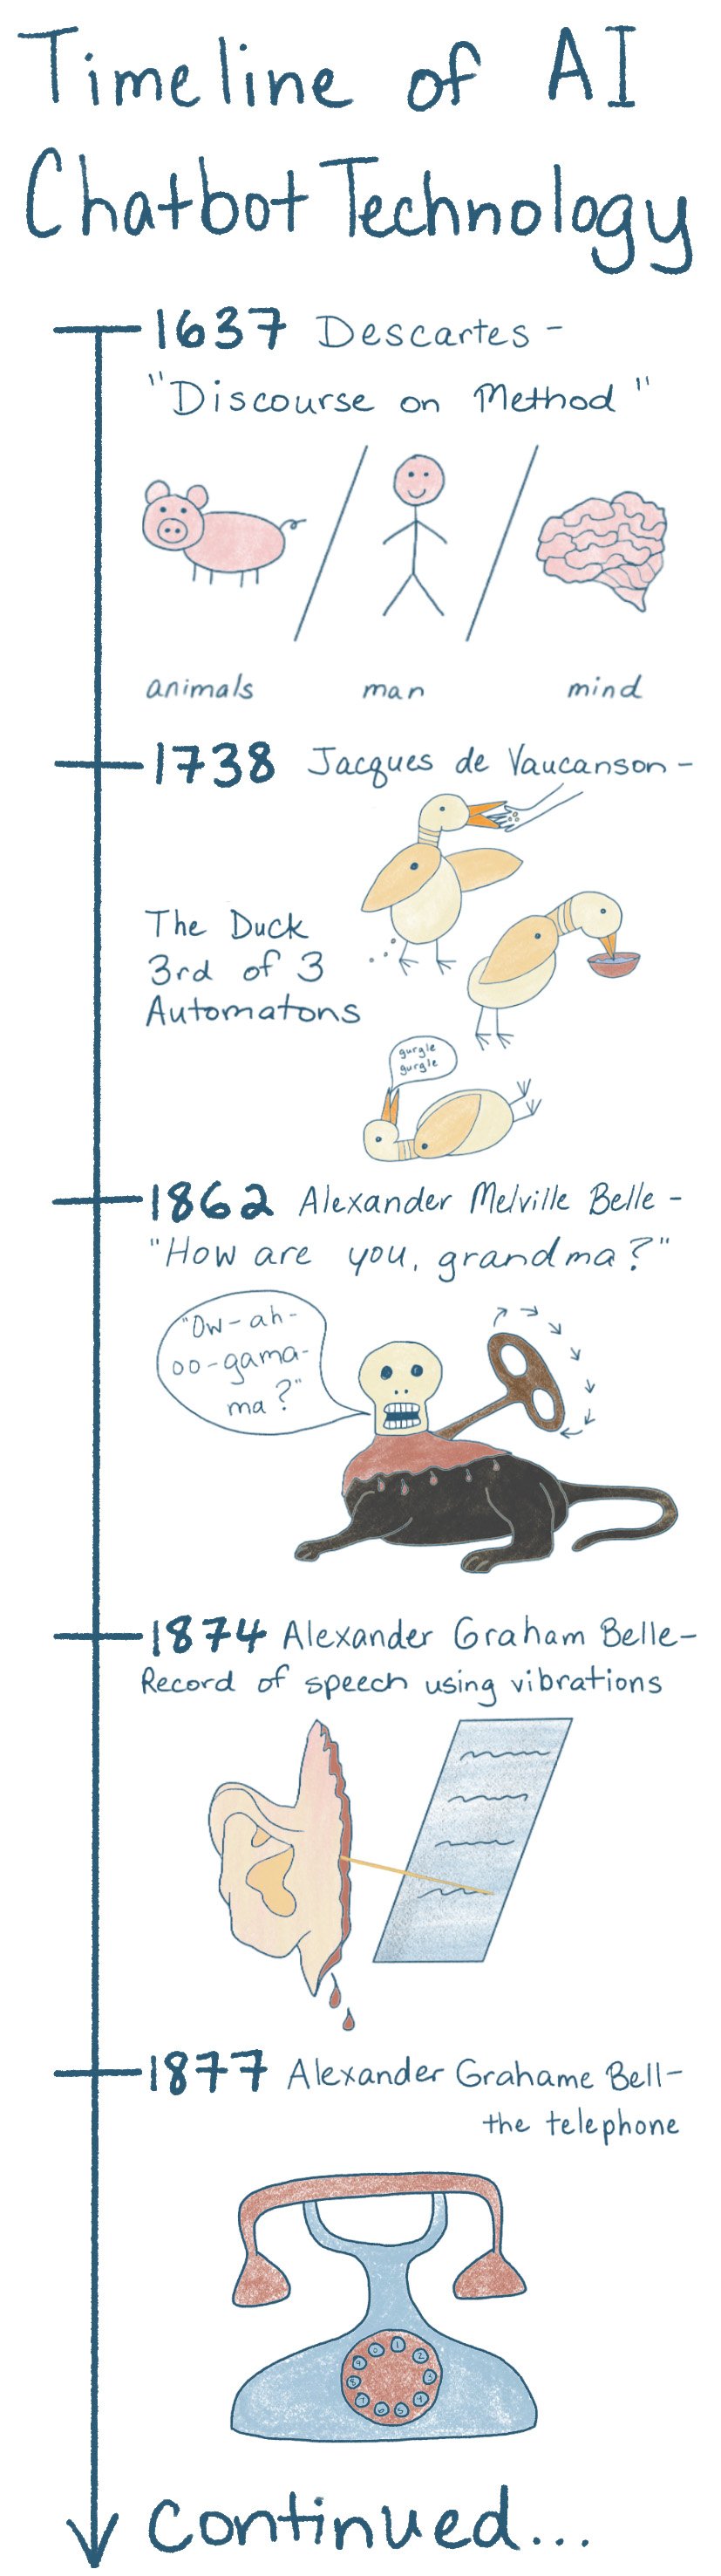 Timeline of AI
Chatbot Technology
1637 Descartes -
"Discourse on Method"
animals man mind
1738 Jacques de Vaucanson -
The Duck
3rd of 3
Automatons
gurgle
gurgle
1862 Alexander Melville Belle -
"How are you, grandma?"
"Ow-ah-
oo-gama-
ma?"
1874 Alexander Graham Belle-
Record of speech using vibrations
1877 Alexander Grahame Bell-
the telephone
1
2
3
4
5
6
7
8
9
0
Continued...